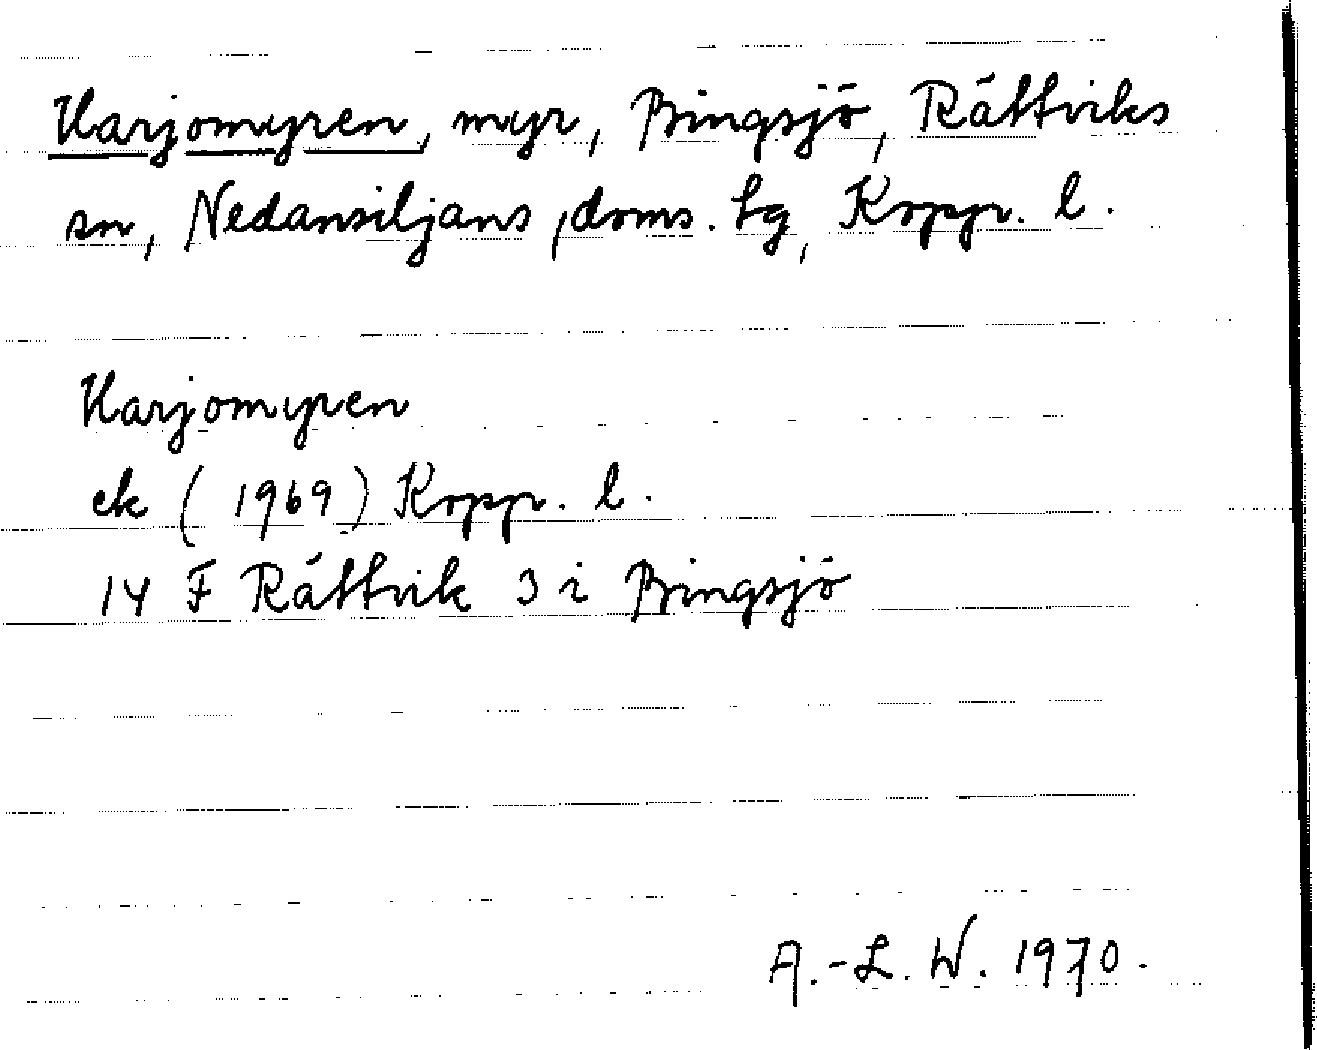 Harjomyren, myr, Bingsjö, Rättviks
sn, Nedansiljans doms. tg, Kopp. l.
Harjomyren
ek (1969) Kopp. l.
14 F Rättvik 3 i Bingsjö
A.-L. W. 1970.